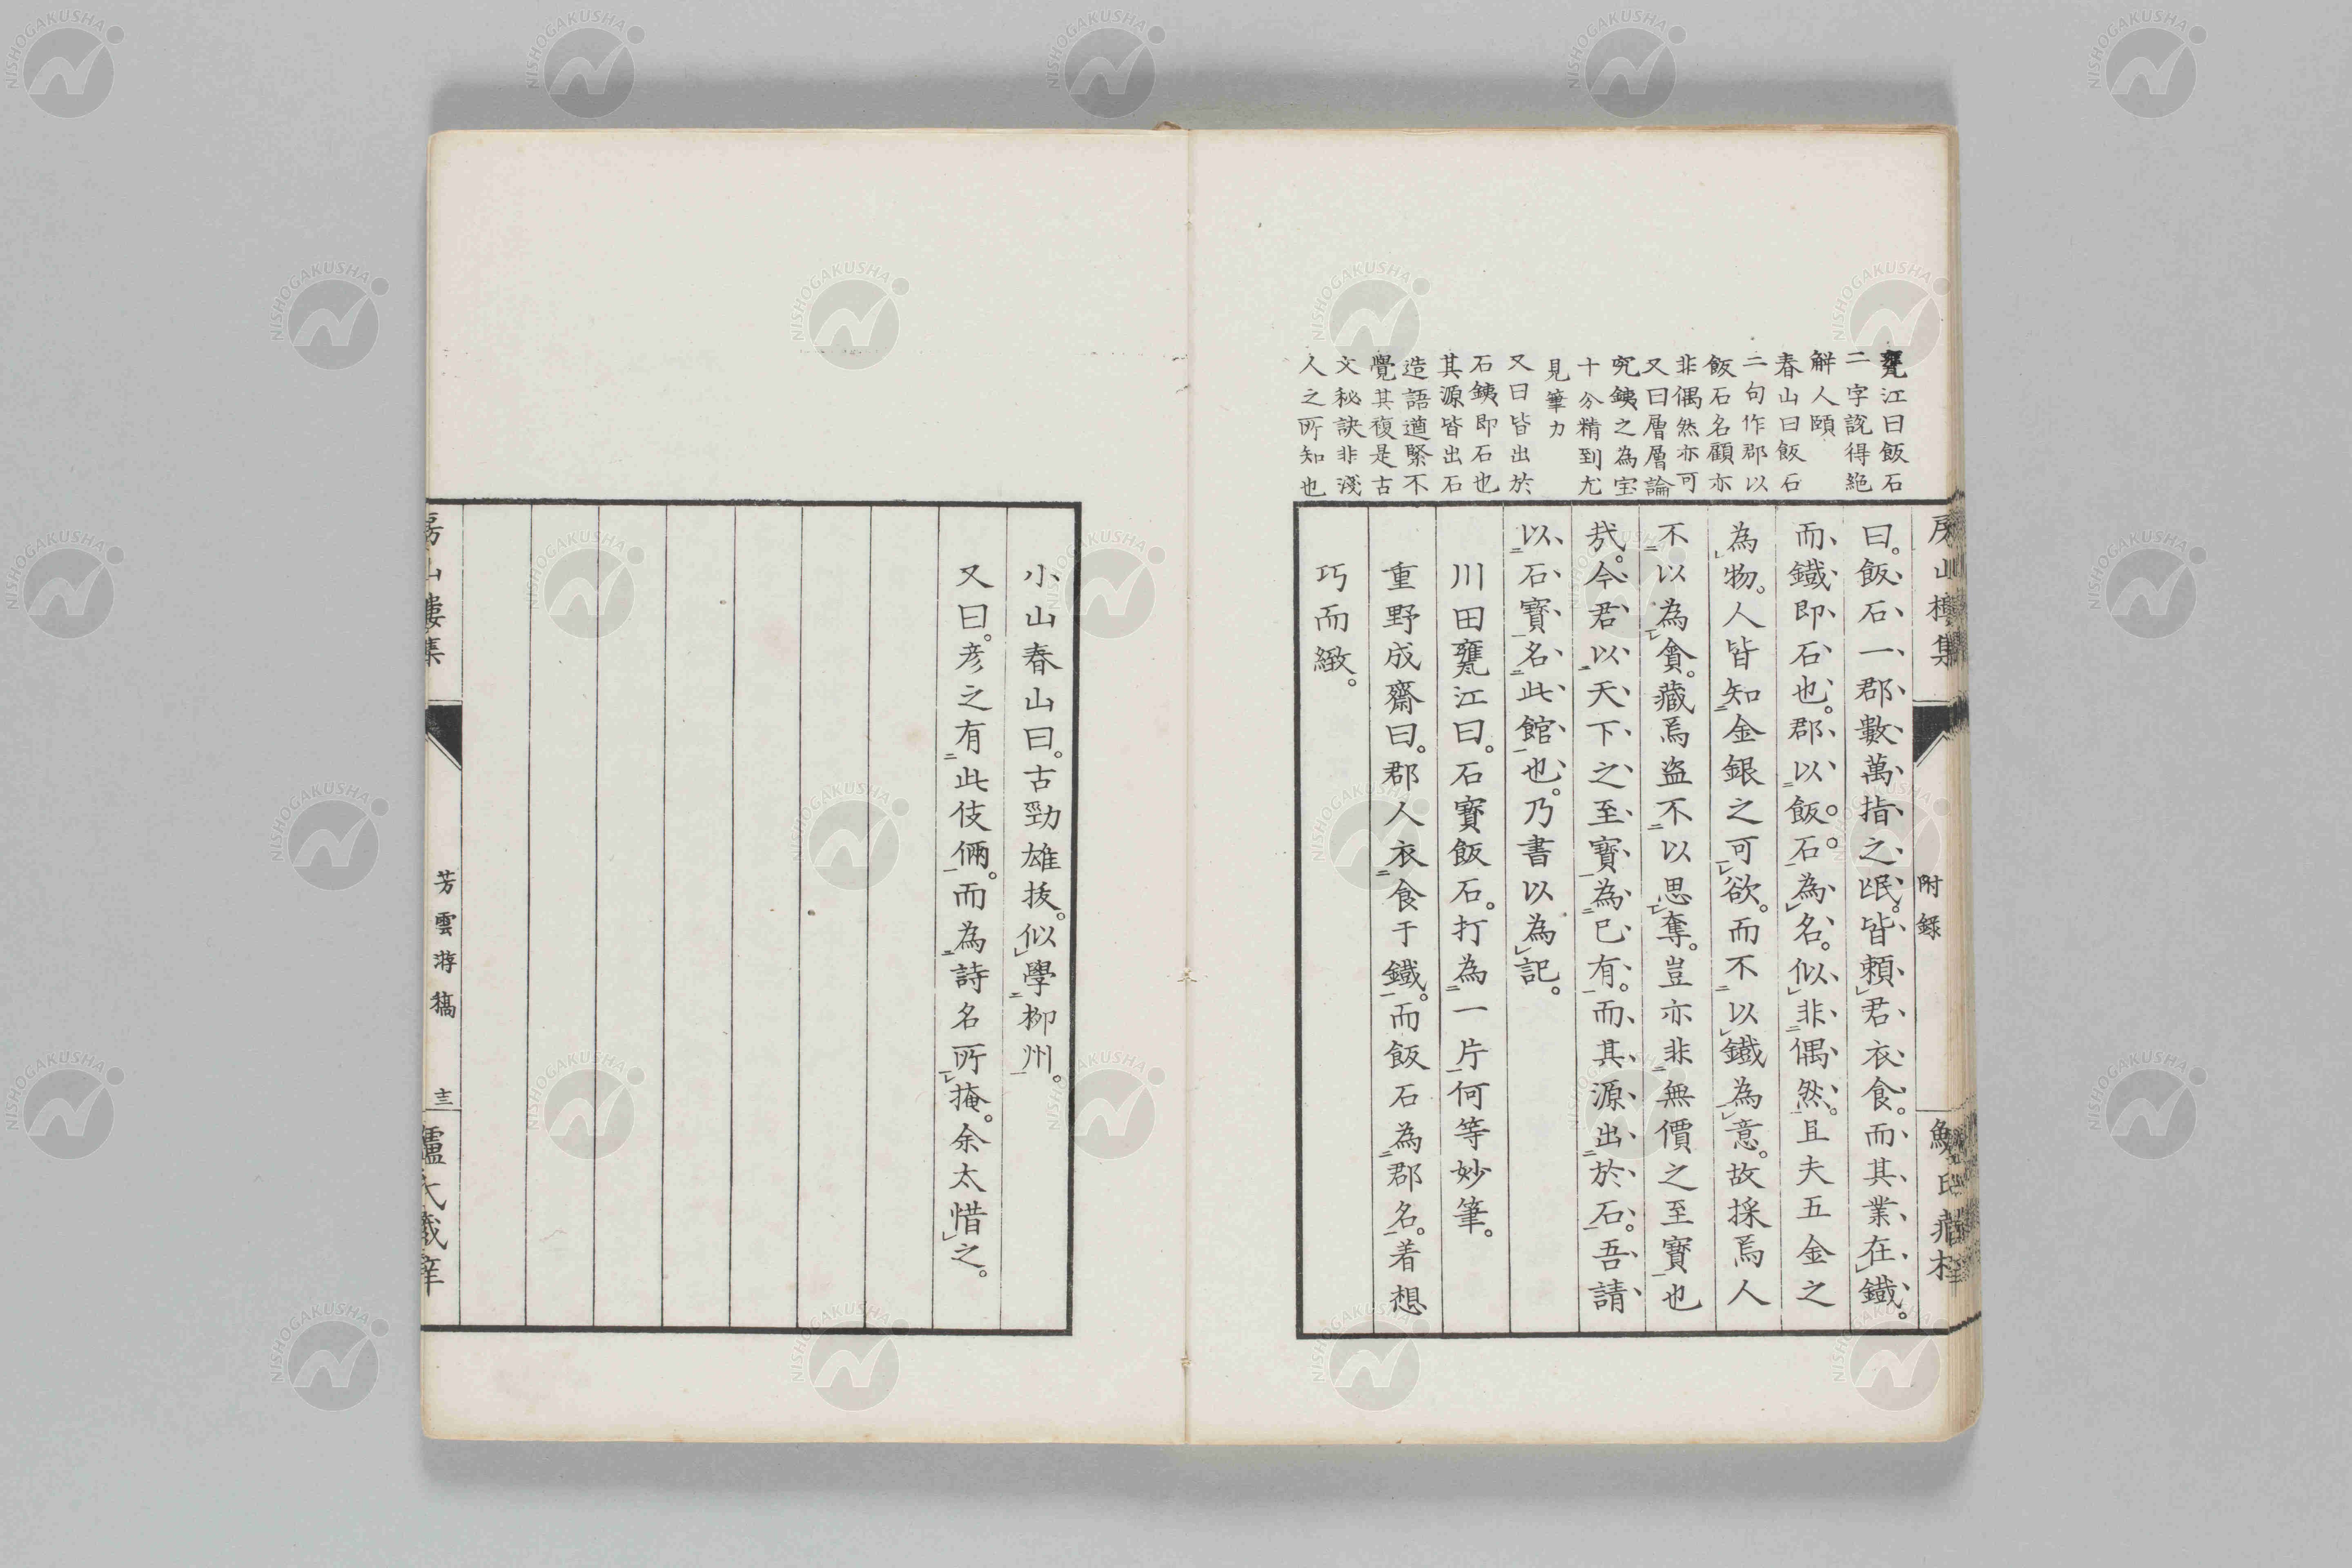 甕江曰飯石
二字說得絕
解人頤
春山曰飯石
二句作郡以
飯石名顧亦
非偶然亦可
又曰層層論
究銕之為宝
十分精到尤
見筆力
又曰皆出於
石銕即石也
其源皆出石
造語遒緊不
覺其複是古
文秘訣非淺
人之所知也
房山樓集
附錄
曰。飯石一郡數萬指之氓。皆賴君衣食。而其業在鐵。
而鐵即石也。郡以飯石為名。似非偶然。且夫五金之
為物。人皆知金銀之可欲。而不以鐵為意。故採焉人
不以為貪。藏焉盜不以思奪。豈亦非無價之至寶也
哉。今君以天下之至寶為已有。而其源出於石。吾請
以石寶名此館也。乃書以為記。
川田甕江曰。石寶飯石。打為一片。何等妙筆。
重野成齋曰。郡人衣食于鐵。而飯石為郡名。着想
巧而緻。
小山春山曰。古勁雄拔。似學柳州。
又曰。彥之有此伎倆。而為詩名所掩。余太惜之。
房山樓集
芳雲游稿
十三
NISHOGAKUSHA